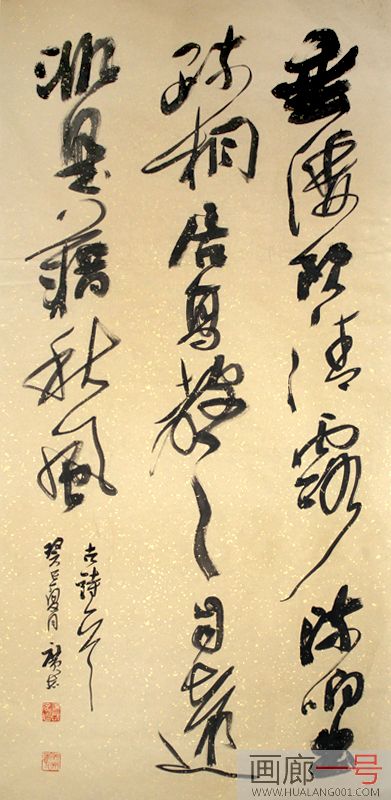 垂緌飲清露流响出
疏桐居高聲自遠
非是藉秋風
古詩一首
癸巳夏月
画廊一号
WWW.HUALANG001.COM